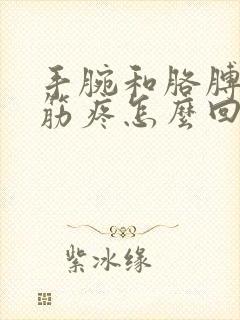 手腕和胳膊
筋疼怎麼回
紫冰缘